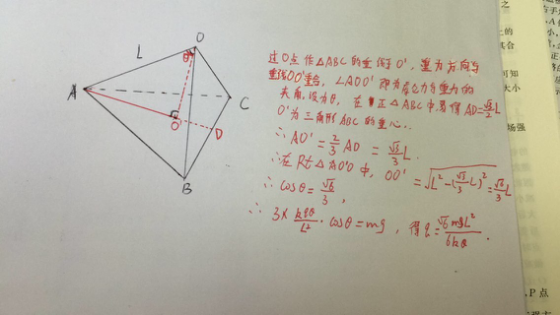 O
L
θ
A
C
O'
D
B
过O点作△ABC的垂线于O', 重力方向与
垂线OO'重合, ∠AOO'即为库仑力与重力的
夹角,设为θ, 在正△ABC中,易得AD=√3/2 L
O'为三角形ABC的重心.
∴ AO' = 2/3 AD = √3/3 L
∴在Rt△AO'O中, OO' = √(L²-(√3/3 L)²) = √6/3 L
∴ cosθ = √6/3,
∴ 3× kqQ/L² · cosθ = mg, 得q = √6mgL²/6kQ.
可知
大小
场强
.P点